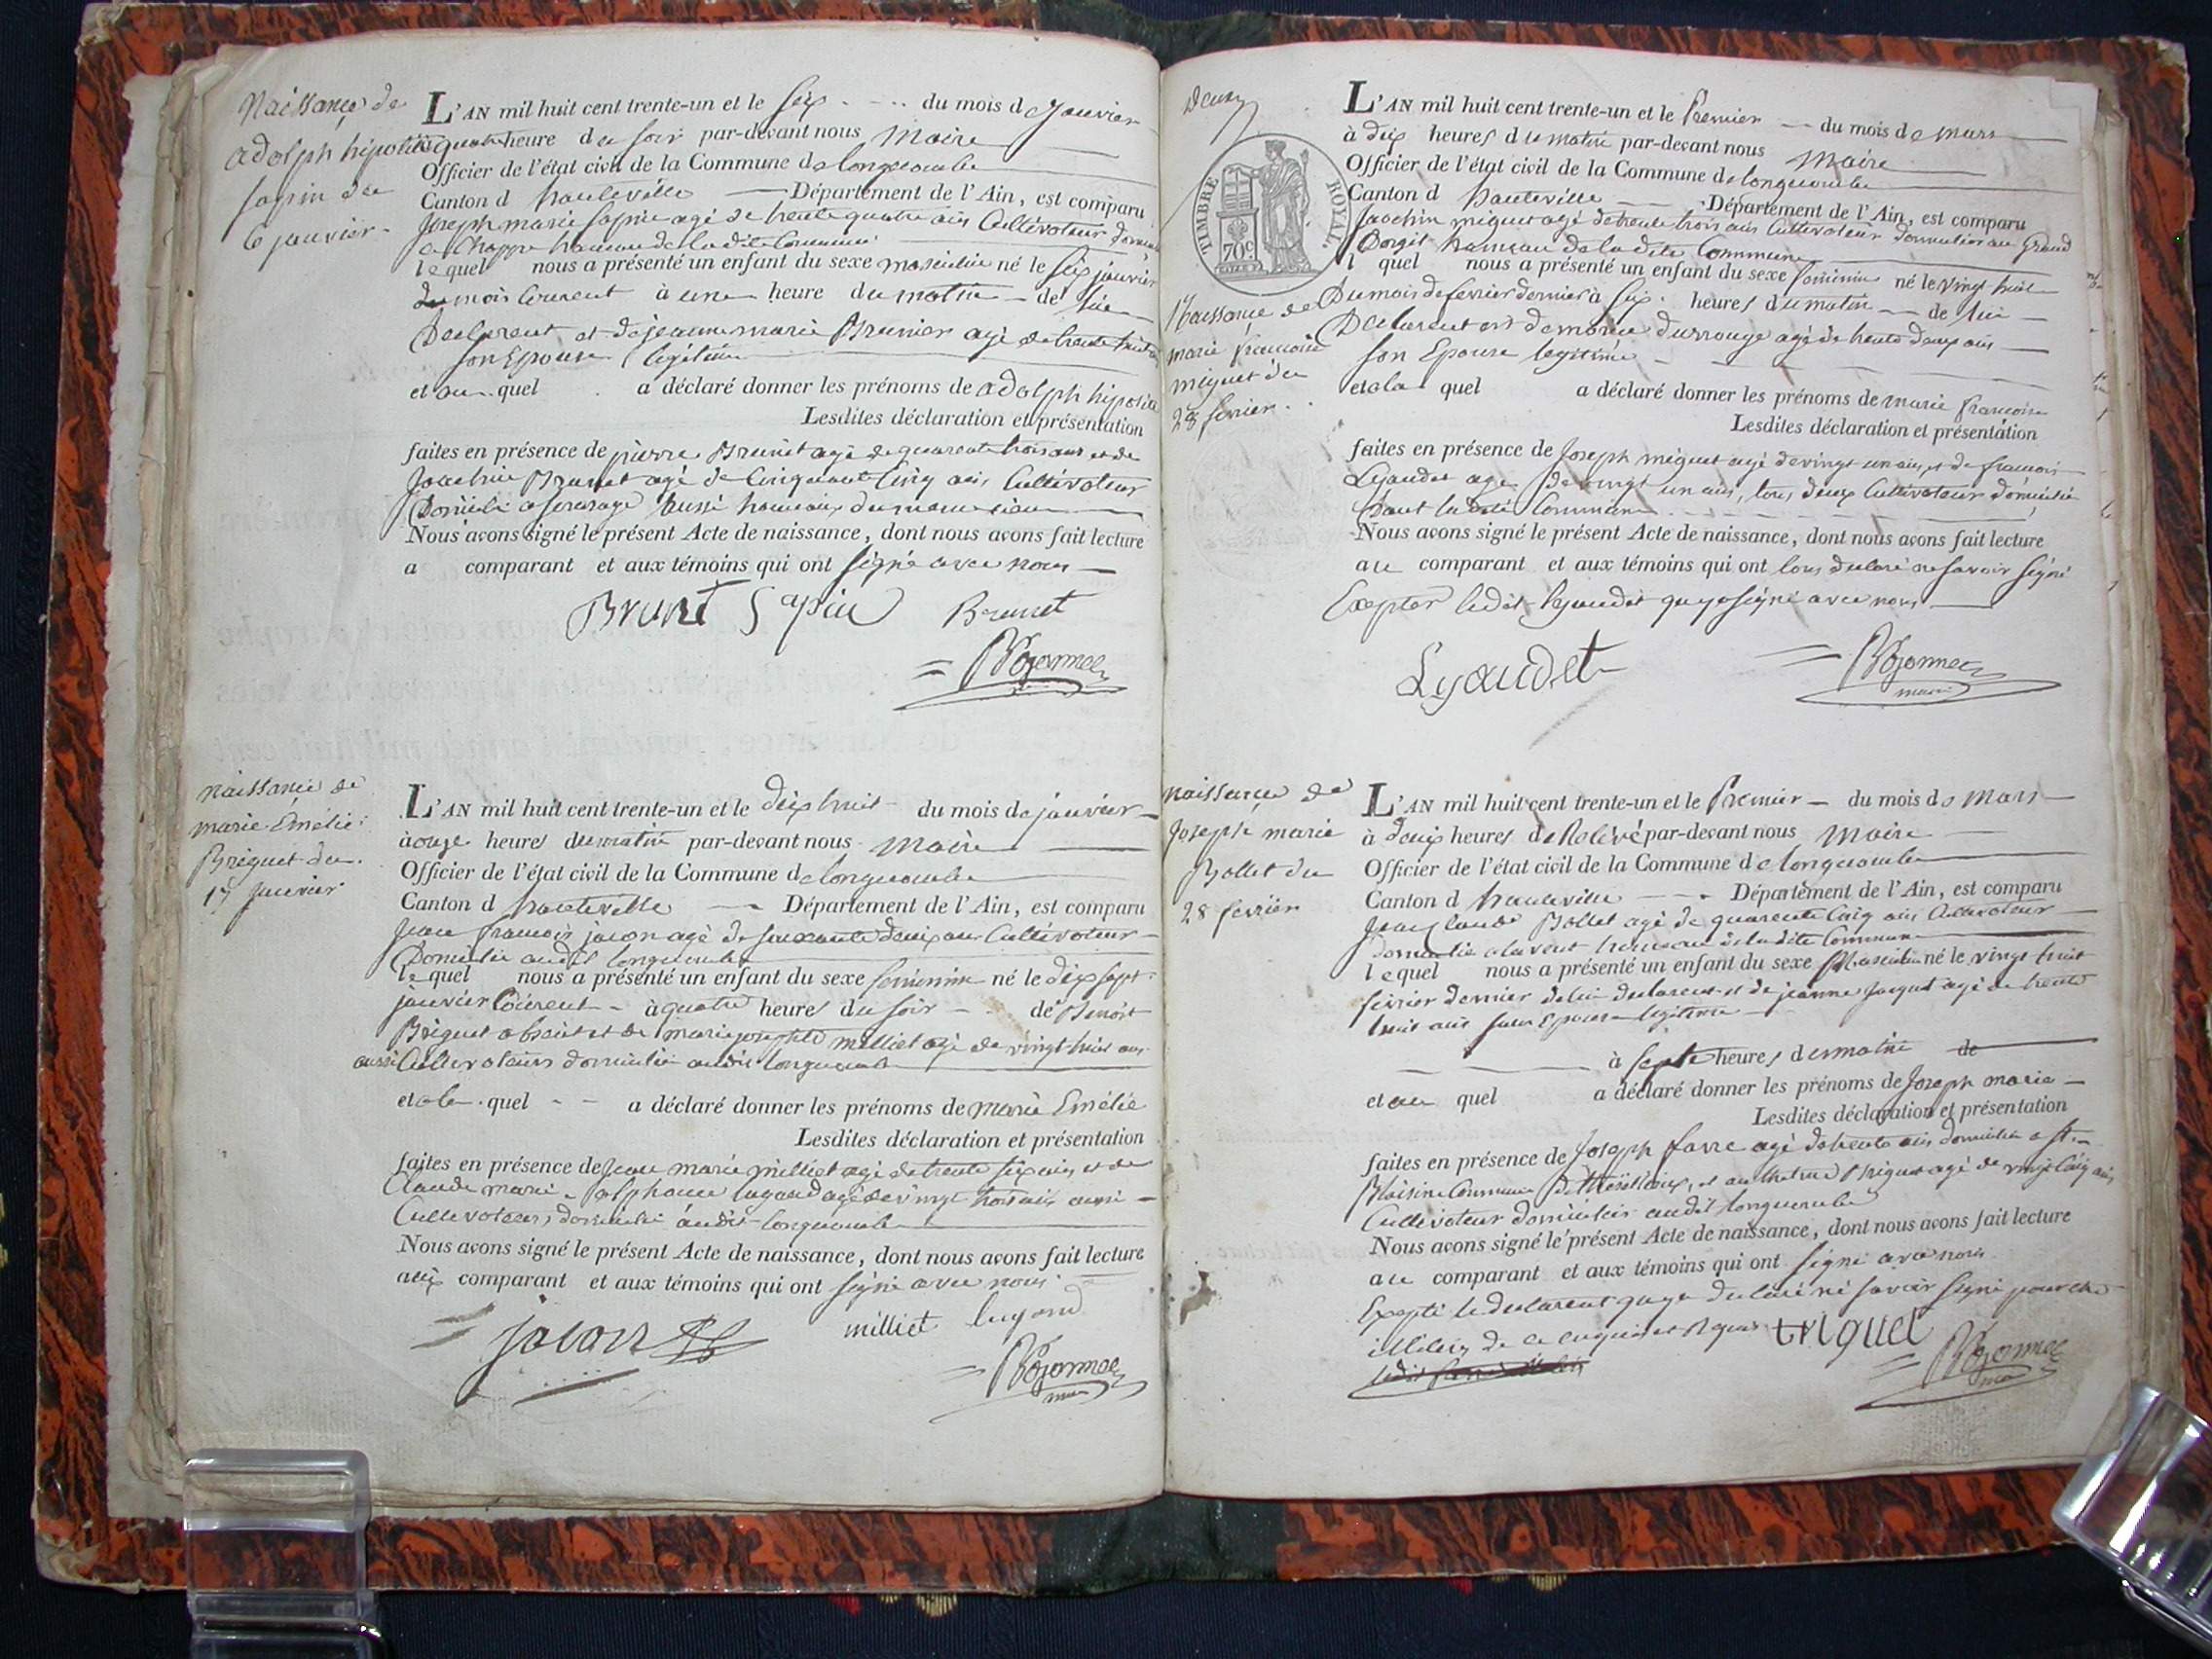 Naissance de
adolph hipolite
sapin du
6 janvier.
L'AN mil huit cent trente-un et le six du mois de Janvier
à quatre heure du soir par-devant nous Maire
Officier de l'état civil de la Commune de longecombe
Canton d hauteville Département de l'Ain, est comparu
Joseph marie sapin agé de trente quatre ans Cultivateur
hameau de la dite Commune
lequel nous a présenté un enfant du sexe masculin né le six janvier
du mois Courent à une heure du matin de lui
Declarent et de jeanne marie Brunier agé de trente
son Epouse legitime
et au quel a déclaré donner les prénoms de adolph hipolite
Lesdites déclaration et présentation
faites en présence de pierre Brunet agé de quarente trois ans et de
Joachin Brunet agé de Cinquante Cinq ans Cultivateur
Domicilié a aussi hameaux du meme lieu
Nous avons signé le présent Acte de naissance, dont nous avons fait lecture
a comparant et aux témoins qui ont signé avec nous
Brunet Sapin Brunet
naissance de
marie Emélie
Briguet du
17 janvier
L'AN mil huit cent trente-un et le dix huit du mois de janvier
à onze heures du matin par-devant nous Maire
Officier de l'état civil de la Commune de longecombe
Canton d hauteville Département de l'Ain, est comparu
Jean francois jacon agé de soixante deux ans Cultivateur
Domicilié audit longecombe
lequel nous a présenté un enfant du sexe feminin né le dix sept
janvier Courent à quatre heures du soir de Benoit
Briguet absent et de marie josephte milliet agé de vingt huit ans
aussi Cultivateurs domicilié audit longecombe
et a la quel a déclaré donner les prénoms de marie Emélie
Lesdites déclaration et présentation
faites en présence de Jean marie milliet agé de trente six ans et de
Claude marie alphonce lugand agé de vingt trois ans aussi
Cultivateurs domicilié audit longecombe
Nous avons signé le présent Acte de naissance, dont nous avons fait lecture
aux comparant et aux témoins qui ont signé avec nous
jacon milliet lugand
maire
Deux
TIMBRE ROYAL
70c
Naissance de
marie francoise
miguet du
28 fevrier.
L'AN mil huit cent trente-un et le Premier du mois de mars
à dix heures du matin par-devant nous Maire
Officier de l'état civil de la Commune de longecombe
Canton d hauteville Département de l'Ain, est comparu
Joachin miguet agé de trente trois ans Cultivateur domicilier au Grand
Dorgit hameau de la dite Commune
l quel nous a présenté un enfant du sexe feminin né le vingt huit
Du mois de fevrier dernier à six heures du matin de lui
Declarent et de marie durrouge agé de trente deux ans
son Epouse legitime
et a la quel a déclaré donner les prénoms de marie francoise
Lesdites déclaration et présentation
faites en présence de Joseph miguet agé de vingt un ans et de francois
Lyaudet agé de vingt un ans, tous deux Cultivateur domicilié
dant la dite Commune
Nous avons signé le présent Acte de naissance, dont nous avons fait lecture
au comparant et aux témoins qui ont tous declaré ne savoir signé
Exepter ledit lyaudet qu y a signé avec nous
Lyaudet
maire
naissance de
Joseph marie
Bollet du
28 fevrier
L'AN mil huit cent trente-un et le Premier du mois de Mars
à deux heures de Relevé par-devant nous Maire
Officier de l'état civil de la Commune de longecombe
Canton d hauteville Département de l'Ain, est comparu
Jean claude Bollet agé de quarente Cinq ans Cultivateur
Domicilié hameau de la dite Commune
lequel nous a présenté un enfant du sexe Masculin né le vingt huit
fevrier dernier de lui declarent et de jeanne Jaquet agé de trente
huit ans son Epouse legitime
à septe heures du matin de
et au quel a déclaré donner les prénoms de Joseph marie
Lesdites déclaration et présentation
faites en présence de Joseph favre agé de trente ans domicilié a st.
Blaisine Commune de et Briguet agé de vingt Cinq ans
Cultivateur domicilier audit longecombe
Nous avons signé le présent Acte de naissance, dont nous avons fait lecture
au comparant et aux témoins qui ont signé avec nous
Excepté le declarent qu y a declaré ne savoir signé pour etre
illiteré de ce enquis et Requis